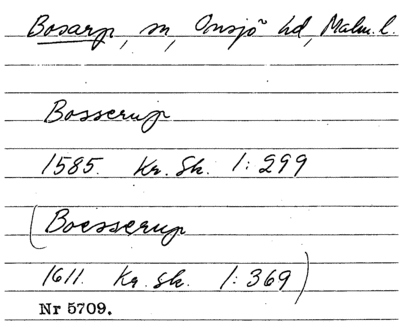 Bosarp, sn, Onsjö hd, Malm. l.
Bosserup
1585. Kr. Sk. 1:299
(Boesserup
1611. Kr. Sk. 1:369)
Nr 5709.